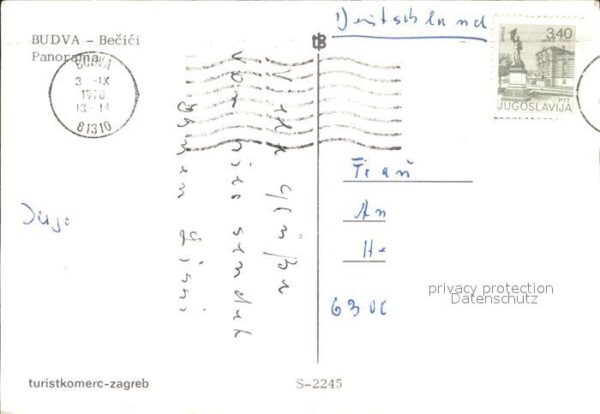 BUDVA – Bečići
Panorama
BUDVA
3 -IX
1978
13-14
81310
Deutschland
3,40
JUGOSLAVIJA
PTT
Viele Grüße
von hier sendet
Frau
An
He
6300
privacy protection
Datenschutz
turistkomerc-zagreb
S-2245